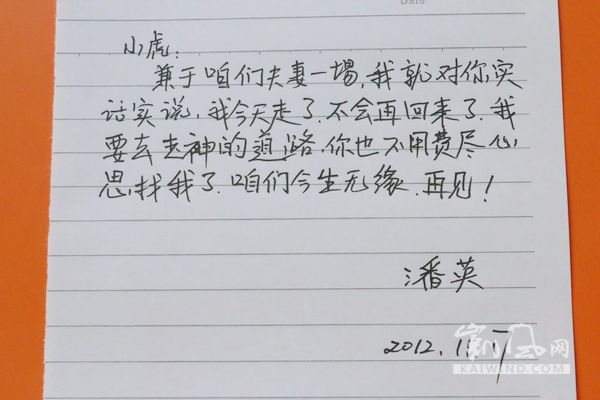 Date
小虎:
兼于咱们夫妻一場,我就对你实
话实说,我今天走了.不会再回来了.我
要去走神的道路.你也不用费尽心
思,找我了.咱们今生无缘.再见!
潘英
2012.11.17
凯风网
KAIWIND.COM